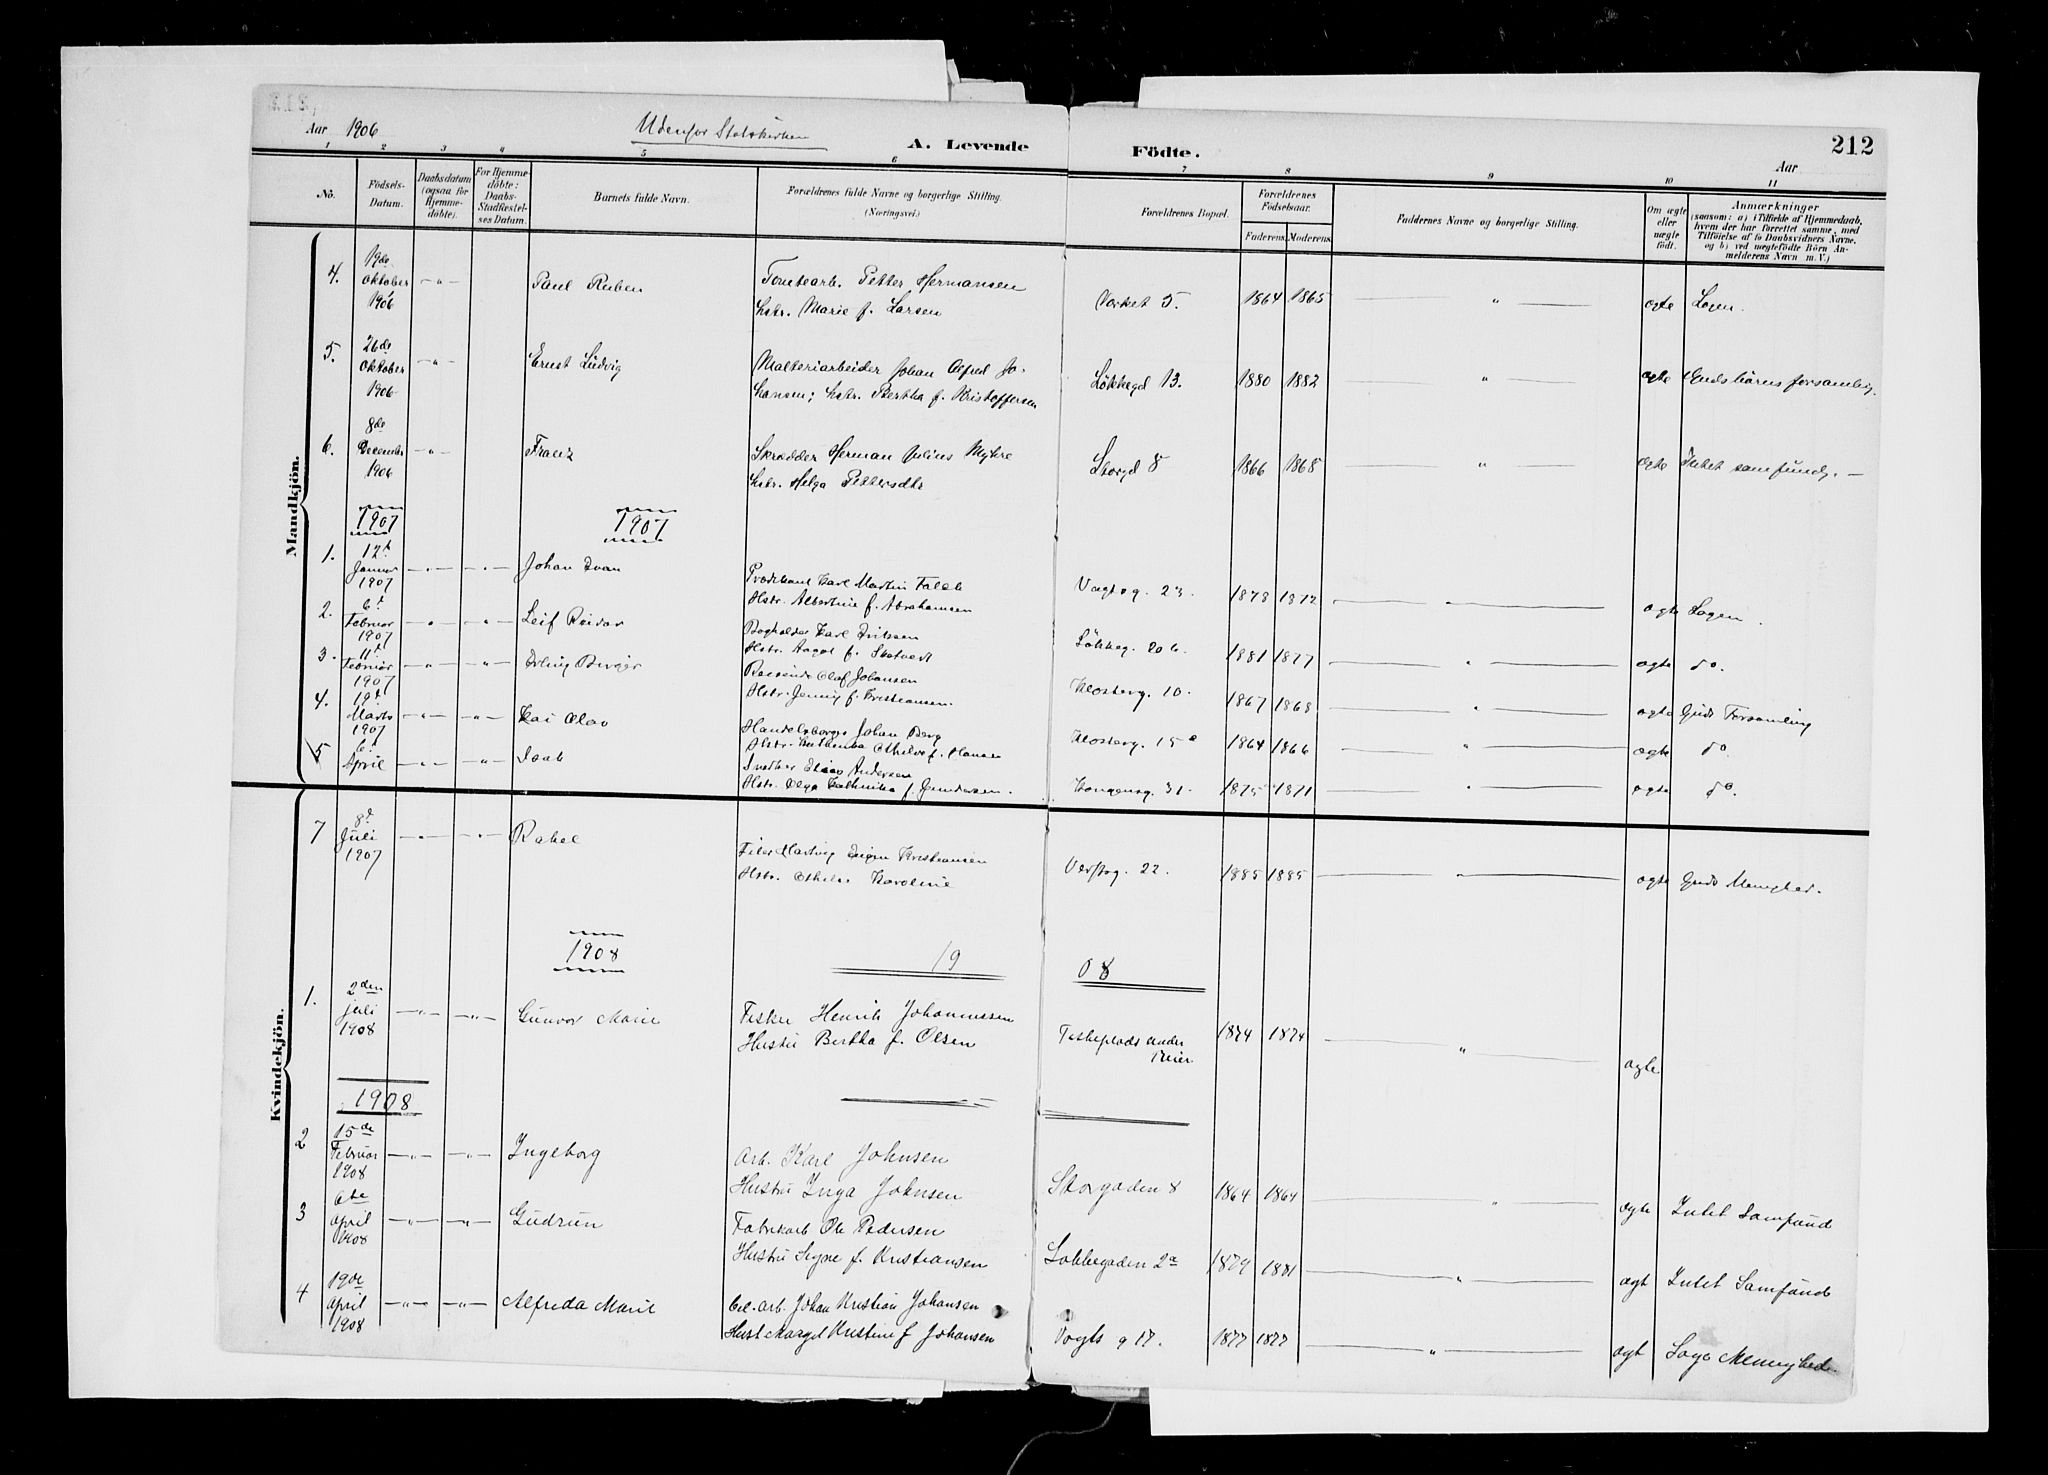 Aar 1906
Udenfor Statskirken
A. Levende Födte.
212
Aar
1 2 3 4 5 6 7 8 9 10 11
No.
Födsels-Datum.
Daabsdatum (ogsaa for Hjemme-döbte).
For Hjemme-döbte: Daabs-Stadfæstel-ses Datum.
Barnets fulde Navn.
Forældrenes fulde Navne og borgerlige Stilling. (Næringsvei.)
Forældrenes Bopæl.
Forældrenes Födselsaar.
Faderens. Moderens.
Faddernes Navne og borgerlige Stilling.
Om ægte eller uægte födt.
Anmærkninger
(saasom: a) i Tilfælde af Hjemmedaab, hvem der har forrettet samme, med Tilföielse af to Daabsvidners Navne, og b) ved uægtefödte Börn An-melderens Navn m. V.)
Mandkjön.
4. 19de Oktober 1906 -"- Paul Ruben
Tomtearb. Petter Hermansen
hstr. Marie f. Larsen
5. 1864 1865 " ægte
5. 26de Oktober 1906 -"- Ernst Ludvig
Malteriarbeider Johan Alfred Jo-
hansen; hstr. Bertha f. Kristoffersen
Lökkegd 13. 1880 1882 " ægte
6. 8de December 1906 -"- Franz
Skrædder Herman Julius Myhre
hstr. Helga Pettersdtr
Storgd 8 1866 1868 " ægte Intet samfund. -
1907 1907
1. 12t Januar 1907 -"- -"- Johan Ivan
Prædikant Karl Martin Falck
Hstr. Albertine f. Abrahamsen
Vogtsg. 23. 1878 1872 " ægte
2. 6t Februar 1907 " " Leif Reidar
Bogholder Karl Eriksen
Hstr. Aagot f. Skotvedt
Lökkeg. 20 b. 1881 1877 " ægte do.
3. 11t Februar 1907 -"- -"- Erling Birger
Reisende Olaf Johansen
Hstr. Jenny f. Kristiansen.
Klosterg. 10. 1867 1868 " ægte Guds Forsamling
4. 19d Marts 1907 -"- -"- Kai Olav
Handelsborger Johan Berg
Hstr. f. Hansen
Klosterg. 15 1864 1866 " ægte do.
5 6t April -"- -"- Isak
Snedker Elias Andersen
Hstr. Olga f. Gundersen.
Kongensg. 31. 1875 1871 " ægte do.
Kvindekjön.
7 8d Juli 1907 -"- -"- Rakel
Filer Hartvig Kristiansen
Hstr. Karoline
Verftsg. 22. 1885 1885 " ægte Guds Menighed.
1908 19 08
1. 2den juli 1908 -"- -"- Gunvor Marie
Fisker Henrik Johannessen
Hustru Bertha f. Olsen
Feskeplads under
1874 1874 " ægte
1908
2 15de Februar 1908 -"- -"- Ingeborg
Arb. Karl Johnsen
Hustru Inga Johnsen
Storgaden 8 1864 1864 " ægte Intet Samfund
3 6te April 1908 -"- -"- Gudrun
Fabrikarb Ole Pedersen
Hustru Signe f. Kristiansen
Løkkegaden 2a 1879 1881 " ægt Intet Samfund
4 19de April 1908 -"- -"- Alfreda Marie
Cel. arb. Johan Kristian Johansen
Hust Margit Kristine f Johansen
Vogts g 17. 1877 1877 " ægt